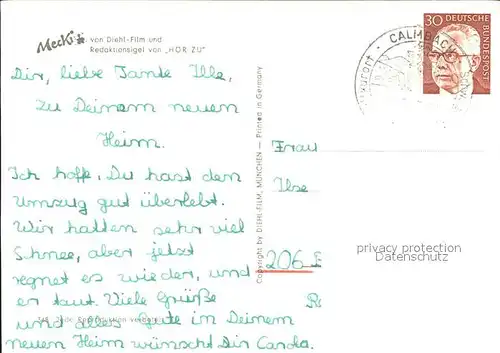 Mecki von Diehl-Film und
Redaktionsigel von „HÖR ZU"
Dir, liebe Tante Ilse,
zu Deinem neuen
Heim.
Ich hoffe, Du hast den
Umzug gut überlebt.
Wir hatten sehr viel
Schnee, aber jetzt
regnet es wieder, und
er taut. Viele Grüße
und alles Gute in Deinem
neuen Heim wünscht Dir Carola.
Jede Reproduktion verboten
Copyright by DIEHL-FILM, MÜNCHEN — Printed in Germany
CALMBACH
30 DEUTSCHE
BUNDESPOST
Frau
Ilse
206
privacy protection
Datenschutz